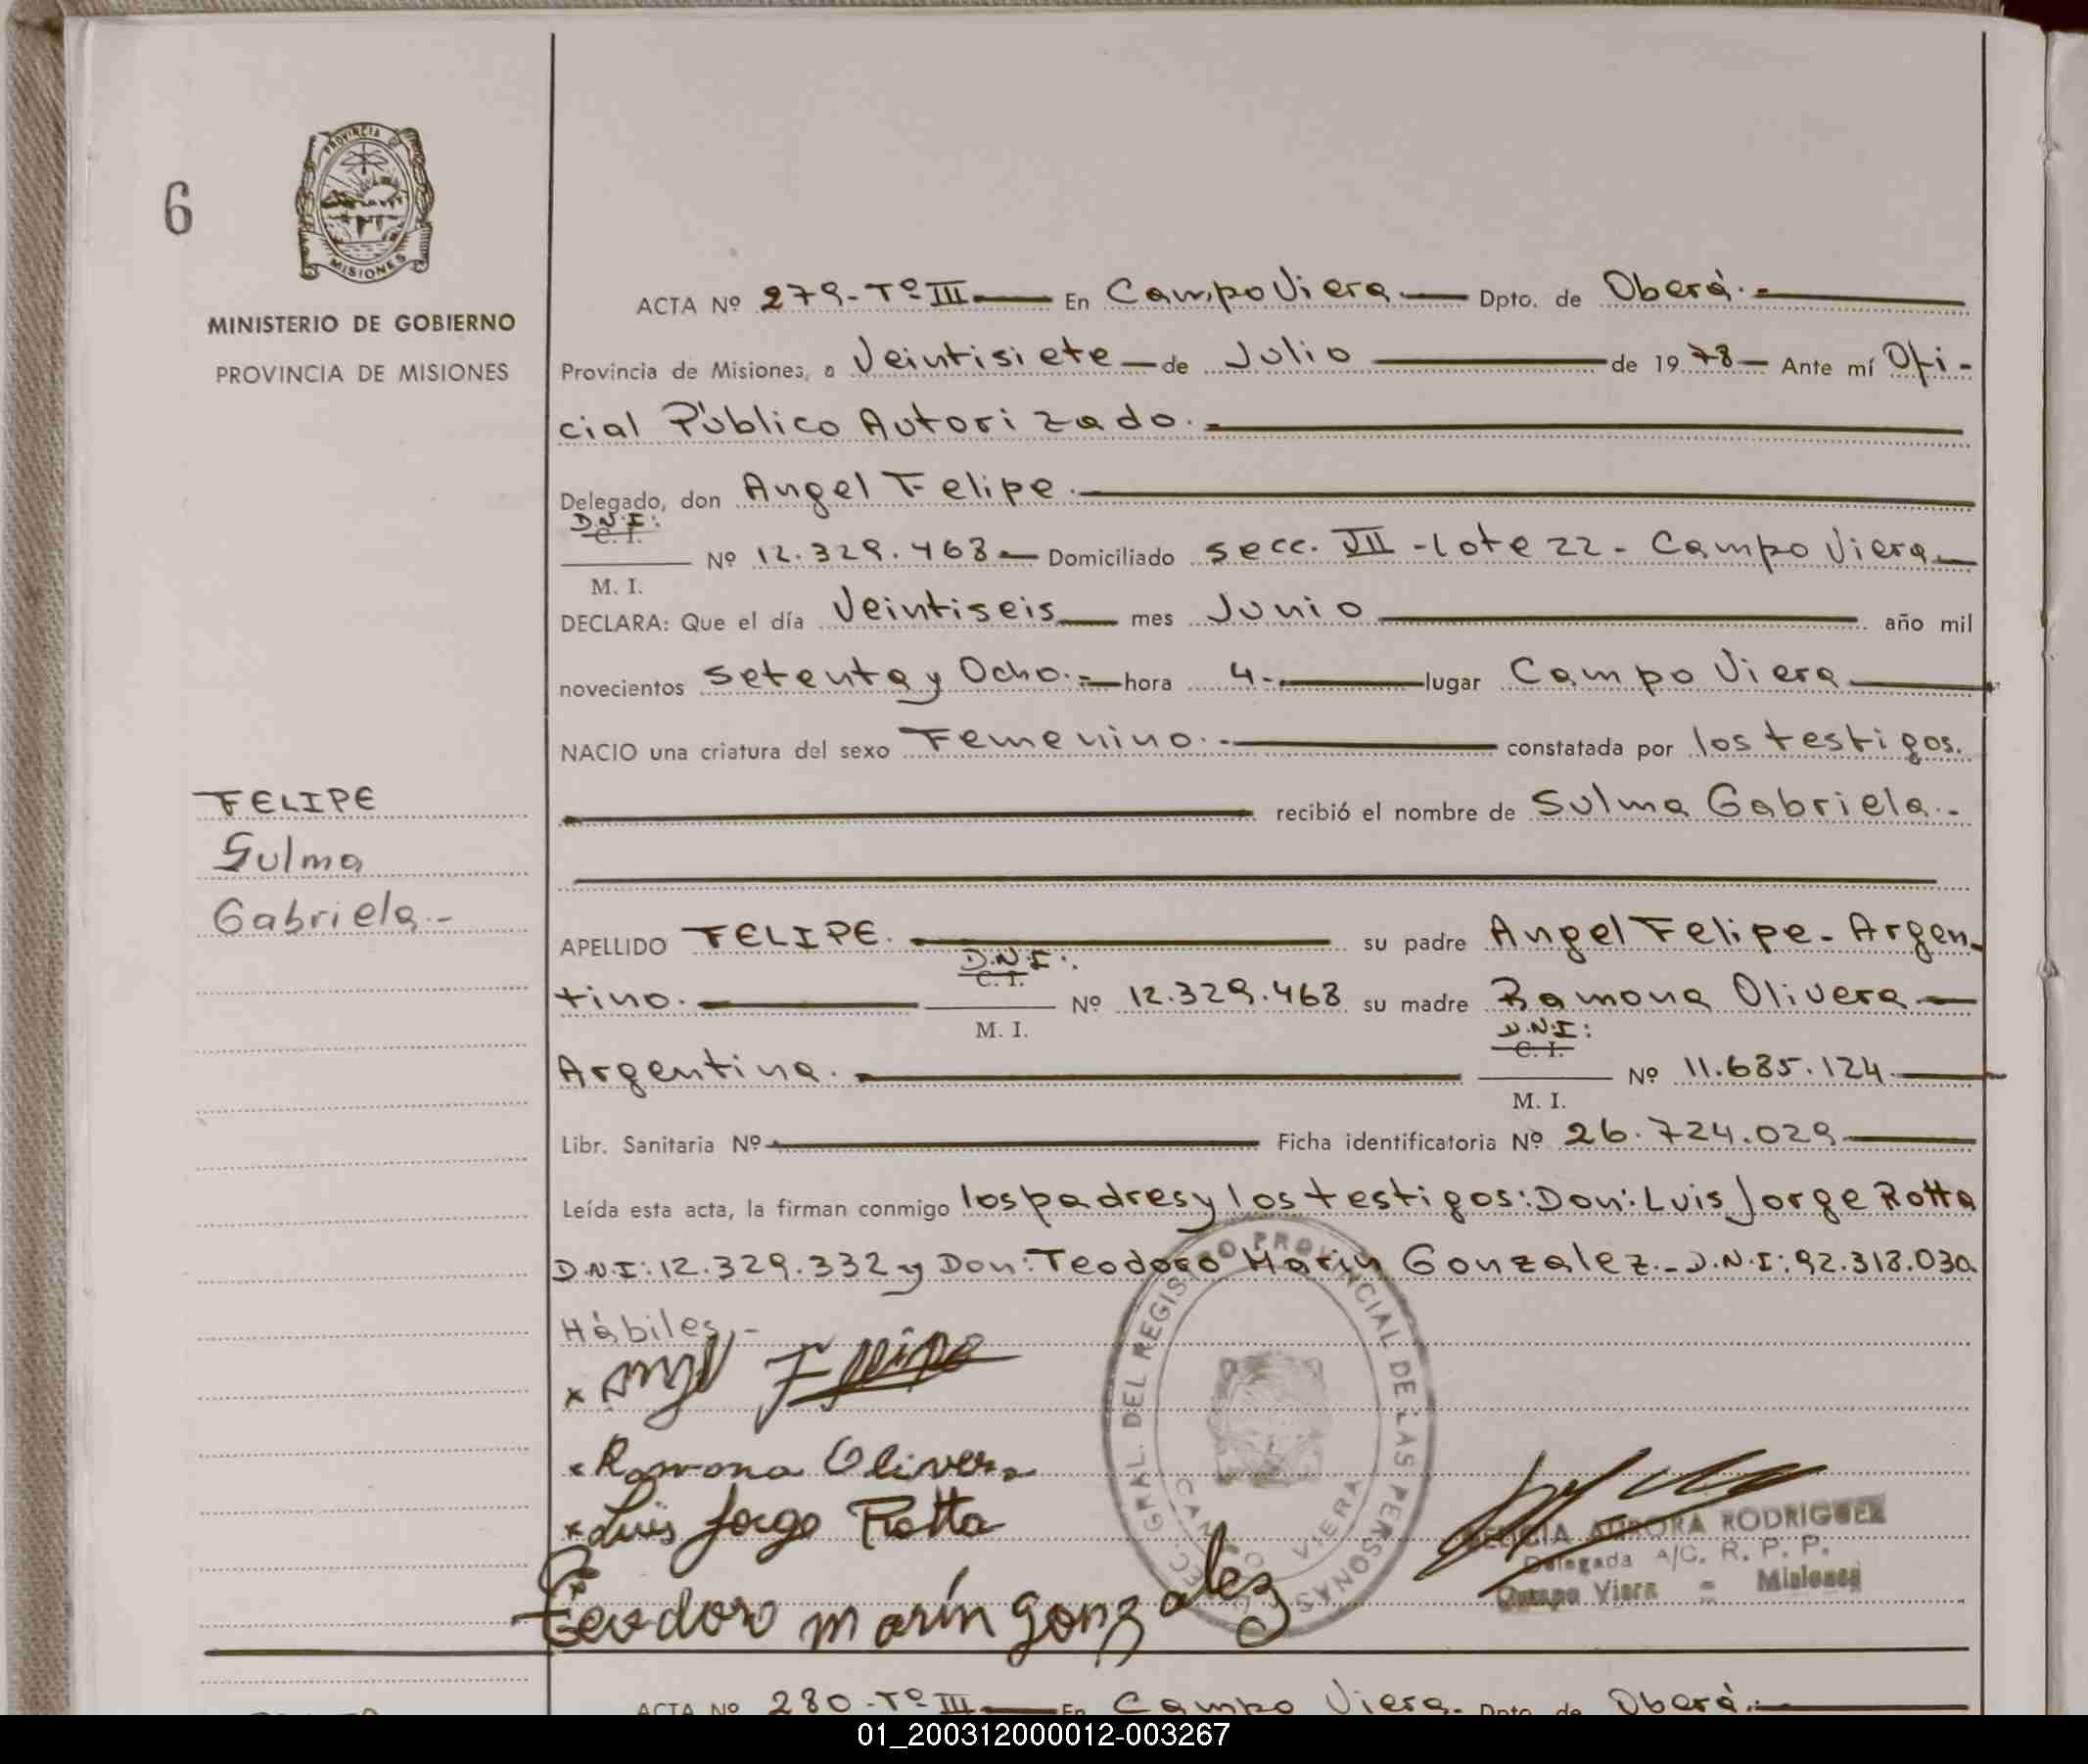 6
PROVINCIA DE
MISIONES
MINISTERIO DE GOBIERNO
PROVINCIA DE MISIONES
ACTA Nº 279-Tº III En Campo Viera Dpto. de Oberá.-
Provincia de Misiones, a Veintisiete de Julio de 1978 Ante mí Ofi-
cial Público Autorizado.-
Delegado, don Angel Felipe.-
D.N.I:
C. I.
M. I.
Nº 12.329.468 Domiciliado secc. VII - lote 22 - Campo Viera
DECLARA: Que el día Veintiseis mes Junio año mil
novecientos setenta y Ocho.- hora 4.- lugar Campo Viera
NACIO una criatura del sexo Femenino.- constatada por los testigos.
recibió el nombre de Sulma Gabriela.-
FELIPE
Sulma
Gabriela.-
APELLIDO FELIPE. su padre Angel Felipe - Argen-
D.N.I:
C. I.
M. I.
tino. Nº 12.329.468 su madre Ramona Olivera
D.N.I:
C. I.
M. I.
Argentina. Nº 11.685.124
Libr. Sanitaria Nº Ficha identificatoria Nº 26.724.029
Leída esta acta, la firman conmigo los padres y los testigos: Don: Luis Jorge Rotta
D.N.I: 12.329.332 y Don: Teodoro Marin Gonzalez - D.N.I: 92.318.030
Hábiles.-
x Angel Felipe
x Ramona Olivera
x Luis Jorge Rotta
Teodoro marín gonzalez
GRAL. DEL REGISTRO PROVINCIAL DE LAS PERSONAS
CAMPO VIERA
AURORA RODRIGUEZ
Delegada A/C. R. P. P.
Campo Viera - Misiones
ACTA Nº 280-Tº III En Campo Viera. Dpto. de Oberá.-
01_200312000012-003267